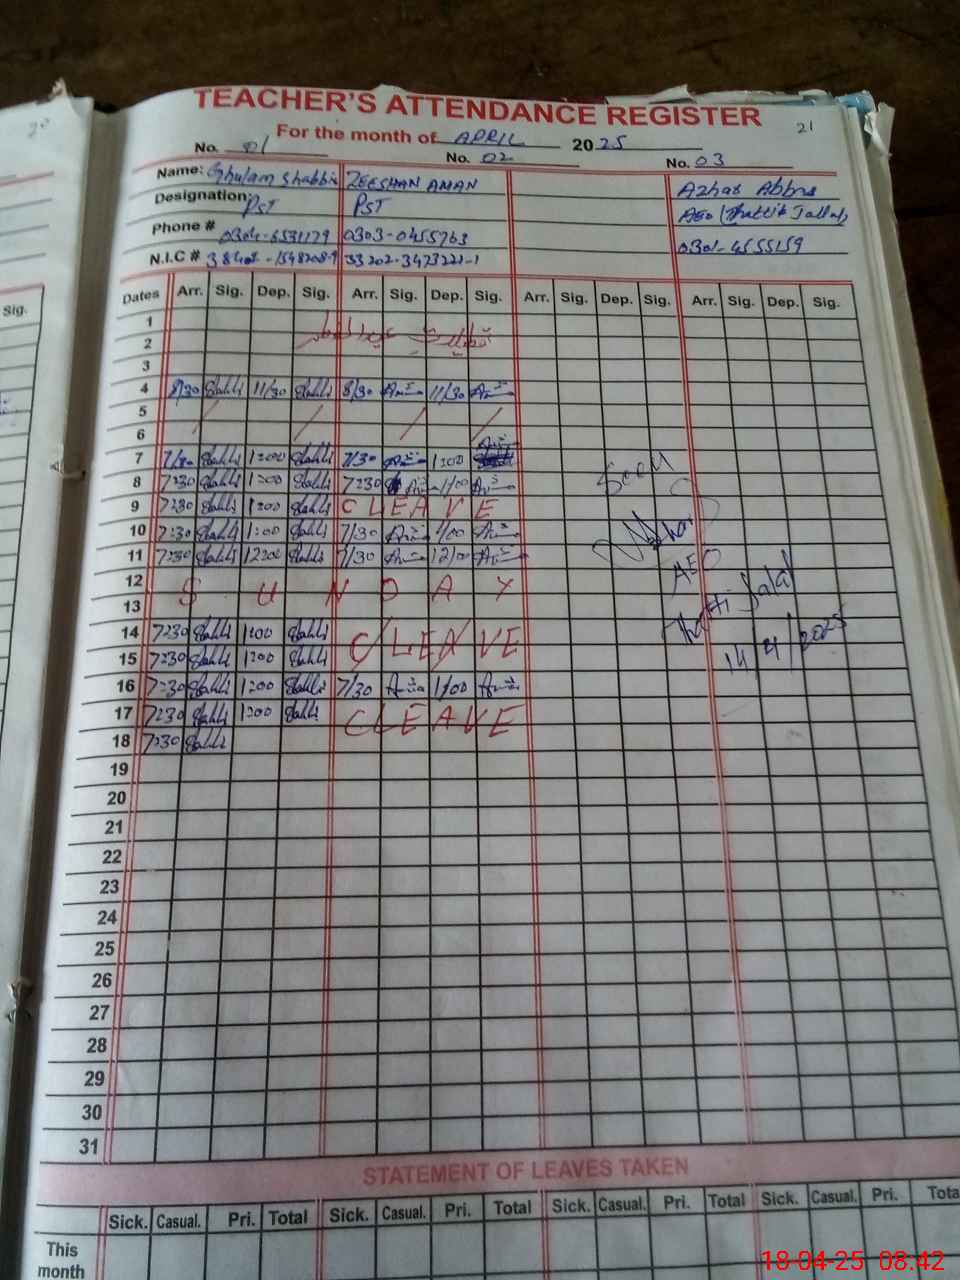 20
21
TEACHER'S ATTENDANCE REGISTER
For the month of APRIL 2025
No. 01 No. 02 No. 03
Name: Ghulam Shabbir ZEESHAN AMAN Azhar Abbas
Designation: PST PST AEO (Thatti Jallal)
Phone # 0304-6531179 0303-0455763 0301-4555159
N.I.C # 33202-3473221-1
Sig. Dates Arr. Sig. Dep. Sig. Arr. Sig. Dep. Sig. Arr. Sig. Dep. Sig. Arr. Sig. Dep. Sig.
1
2 تعطیلات عیدالفطر
3
4 8/30 11/30 8/30 11/30
5
6
7 7/30 1:00 7/30 1:00
8 7:30 1:00 7:30 1/00
9 7:30 1:00 C LEAVE
10 7:30 1:00 7/30 1/00
11 7:30 12:00 7/30 12/00
12 S U N D A Y
13
14 7:30 1:00 C/LEAVE
15 7:30 1:00
16 7:30 1:00 7/30 1/00
17 7:30 1:00 C LEAVE
18 7:30
Seen
Azhar
AEO
Thatti Jalal
14/4/2025
19
20
21
22
23
24
25
26
27
28
29
30
31
STATEMENT OF LEAVES TAKEN
Sick. Casual. Pri. Total Sick. Casual. Pri. Total Sick. Casual. Pri. Total Sick. Casual. Pri. Tota
This
month
18-04-25 08:42